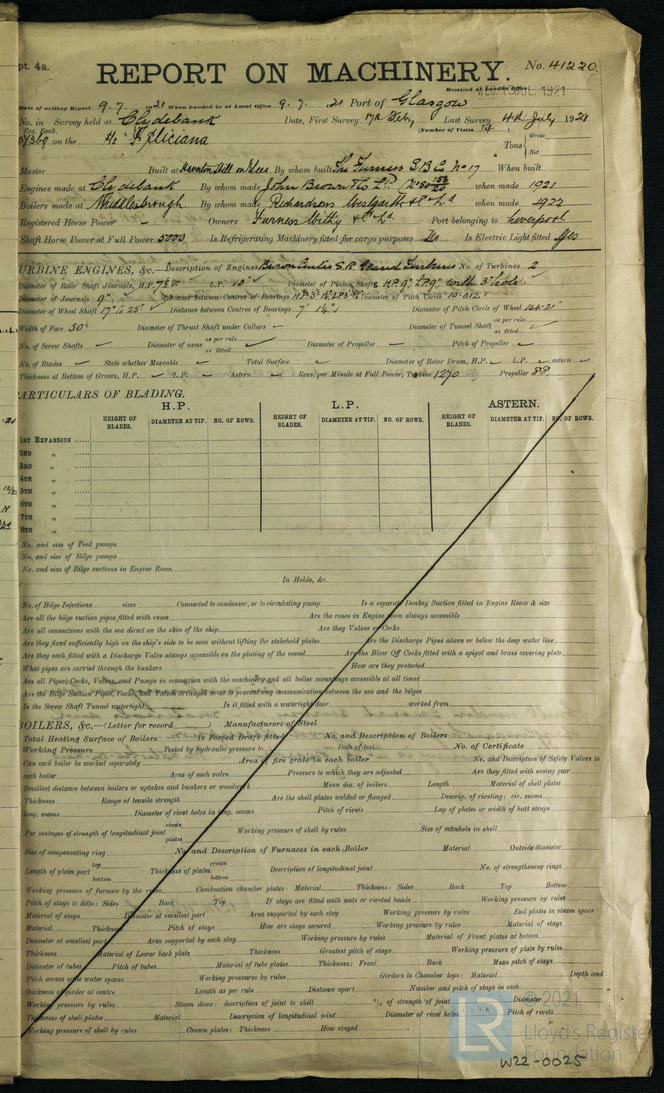 pt. 4a.
REPORT ON MACHINERY.
No. 41220
Received at London Office
JUL. 1921
Date of writing Report 9.7.1921 When handed in at Local Office 9.7.21 Port of Glasgow
No. in Survey held at Clydebank Date, First Survey 17th Feby Last Survey 4th July 1921
Reg. Book. (Number of Visits 14)
on the S/S "Feliciana" Tons Gross Net
Master Built at Haverton Hill on Tees By whom built The Furness S.B.Co No 17 When built
Engines made at Clydebank By whom made John Brown & Co Ld when made 1921
Boilers made at Middlesbrough By whom made Richardsons Westgarth & Co Ld when made 1922
Registered Horse Power - Owners Furness Withy & Co Ld Port belonging to Liverpool
Shaft Horse Power at Full Power Is Refrigerating Machinery fitted for cargo purposes No Is Electric Light fitted Yes
TURBINE ENGINES, &c.—Description of Engines Brown Curtis S.R. Geared Turbines No. of Turbines 2
Diameter of Rotor Shaft Journals, H.P. L.P. Diameter of Pinion Shafts H.P. 9" L.P. 9" with 3" hole
Diameter of Journals 9" Distance between Centres of Bearings Diameter of Pitch Circle 10.012"
Diameter of Wheel Shaft 17" & 25" Distance between Centres of Bearings Diameter of Pitch Circle of Wheel 144.21"
Width of Face 30" Diameter of Thrust Shaft under Collars Diameter of Tunnel Shaft as per rule as fitted
No. of Screw Shafts Diameter of same as per rule as fitted Diameter of Propeller Pitch of Propeller
No. of Blades State whether Moveable Total Surface Diameter of Rotor Drum, H.P. L.P. astern
Thickness at Bottom of Groove, H.P. L.P. Astern Revs. per Minute at Full Power, Turbine 1270 Propeller 88
PARTICULARS OF BLADING.
H.P. L.P. ASTERN.
HEIGHT OF BLADES. DIAMETER AT TIP. NO. OF ROWS. HEIGHT OF BLADES. DIAMETER AT TIP. NO. OF ROWS. HEIGHT OF BLADES. DIAMETER AT TIP. NO. OF ROWS.
1ST EXPANSION
2ND "
3RD "
4TH "
5TH "
6TH "
7TH "
8TH "
No. and size of Feed pumps
No. and size of Bilge pumps
No. and size of Bilge suctions in Engine Room
In Holds, &c.
No. of Bilge Injections sizes Connected to condenser, or to circulating pump Is a separate Donkey Suction fitted in Engine Room & size
Are all the bilge suction pipes fitted with roses Are the roses in Engine room always accessible
Are all connections with the sea direct on the skin of the ship Are they Valves or Cocks
Are they fixed sufficiently high on the ship's side to be seen without lifting the stokehold plates Are the Discharge Pipes above or below the deep water line
Are they each fitted with a Discharge Valve always accessible on the plating of the vessel Are the Blow Off Cocks fitted with a spigot and brass covering plate
What pipes are carried through the bunkers How are they protected
Are all Pipes, Cocks, Valves, and Pumps in connection with the machinery and all boiler mountings accessible at all times
Are the Bilge Suction Pipes, Cocks, and Valves arranged so as to prevent any communication between the sea and the bilges
Is the Screw Shaft Tunnel watertight Is it fitted with a watertight door worked from
BOILERS, &c.—(Letter for record ) Manufacturers of Steel
Total Heating Surface of Boilers Is Forced Draft fitted No. and Description of Boilers
Working Pressure Tested by hydraulic pressure to Date of test No. of Certificate
Can each boiler be worked separately Area of fire grate in each boiler No. and Description of Safety Valves to
each boiler Area of each valve Pressure to which they are adjusted Are they fitted with easing gear
Smallest distance between boilers or uptakes and bunkers or woodwork Mean dia. of boilers Length Material of shell plates
Thickness Range of tensile strength Are the shell plates welded or flanged Descrip. of riveting: cir. seams
long. seams Diameter of rivet holes in long. seams Pitch of rivets Lap of plates or width of butt straps
Per centages of strength of longitudinal joint rivets plates Working pressure of shell by rules Size of manhole in shell
Size of compensating ring No. and Description of Furnaces in each Boiler Material Outside diameter
Length of plain part top bottom Thickness of plates crown bottom Description of longitudinal joint No. of strengthening rings
Working pressure of furnace by the rules Combustion chamber plates: Material Thickness: Sides Back Top Bottom
Pitch of stays to ditto: Sides Back Top If stays are fitted with nuts or riveted heads Working pressure by rules
Material of stays Diameter at smallest part Area supported by each stay Working pressure by rules End plates in steam space
Material Thickness Pitch of stays How are stays secured Working pressure by rules Material of stays
Diameter at smallest part Area supported by each stay Working pressure by rules Material of Front plates at bottom
Thickness Material of Lower back plate Thickness Greatest pitch of stays Working pressure of plate by rules
Diameter of tubes Pitch of tubes Material of tube plates Thickness: Front Back Mean pitch of stays
Pitch across wide water spaces Working pressures by rules Girders to Chamber tops: Material Depth and
thickness of girder at centre Length as per rule Distance apart Number and pitch of stays in each
Working pressure by rules Steam dome: description of joint to shell % of strength of joint Diameter
Thickness of shell plates Material Description of longitudinal joint Diameter of rivet holes Pitch of rivets
Working pressure of shell by rules Crown plates: Thickness How stayed
LR
© 2021
Lloyd's Register
Foundation
W22-0025